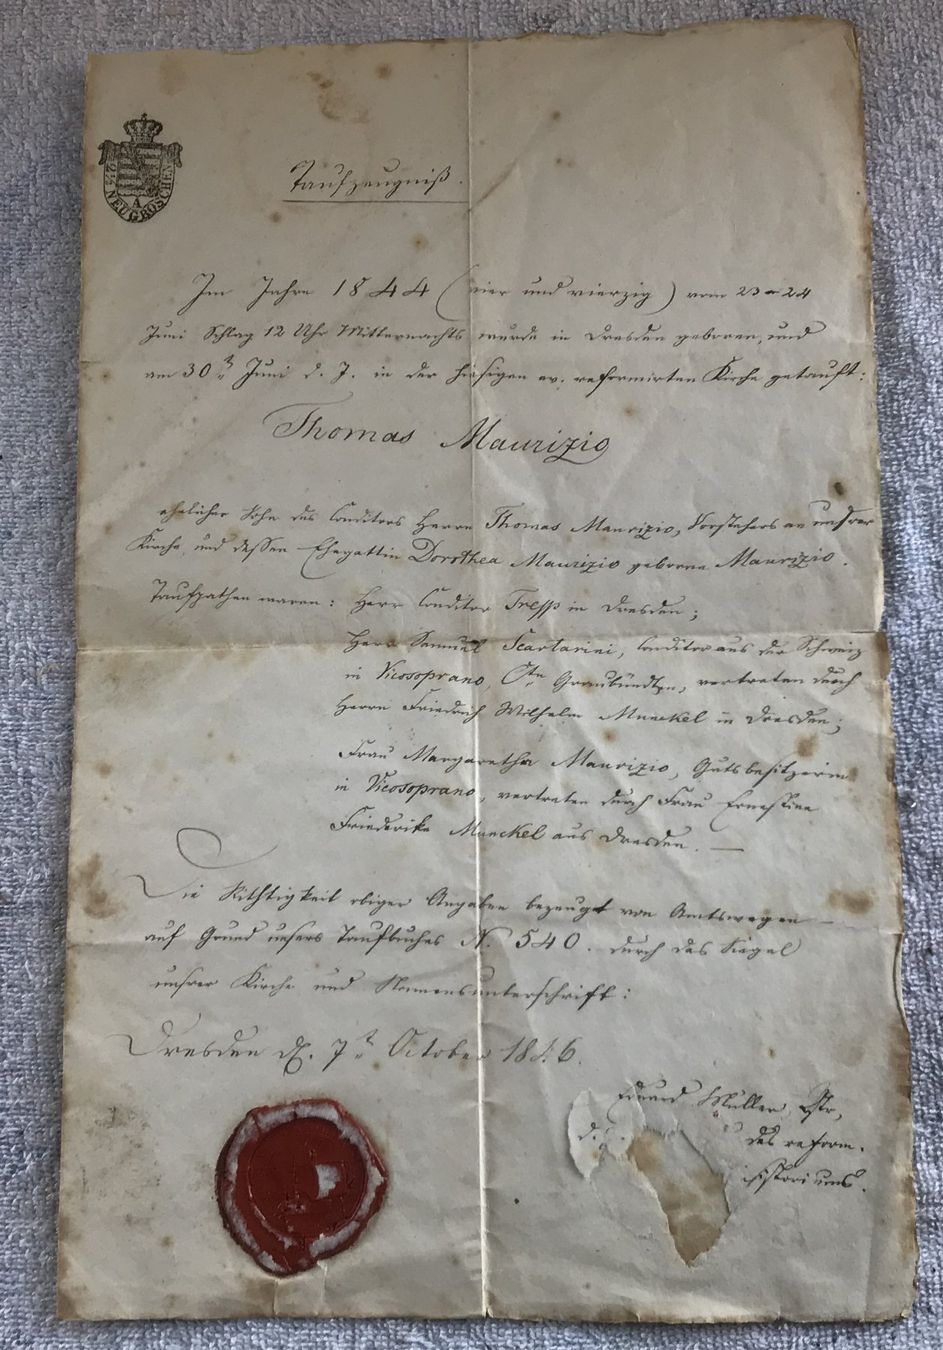 2½ NEUGROSCHEN
A
Taufzeugniß.
Im Jahre 1844 (vier und vierzig) vom 23 – 24
Juni Schlag 12 Uhr Mitternachts wurde in Dresden geboren, und
am 30t. Juni d. J. in der hiesigen ev. reformirten Kirche getauft:
Thomas Maurizio
ehelicher Sohn des Conditors Herrn Thomas Maurizio, Vorstehers an unsrer
Kirche, und dessen Ehegattin Dorothea Maurizio geborne Maurizio.
Taufpathen waren: Herr Conditor Trepp in Dresden;
Herr Samuel Scartazini, Conditor aus der Schweiz
in Vicosoprano, Ctn Graubündten, vertreten durch
Herrn Friedrich Wilhelm Munckel in Dresden;
Frau Margaretha Maurizio, Gutsbesitzerin
in Vicosoprano, vertreten durch Frau Ernestine
Friederike Munckel aus Dresden. —
Die Richtigkeit obiger Angaben bezeugt von Amtswegen —
auf Grund unsers Taufbuches N. 540. durch das Siegel
unsrer Kirche und Namensunterschrift:
Dresden d. 7t. October 1846.
Eduard Müller,
d. des reform.
sistoriums.